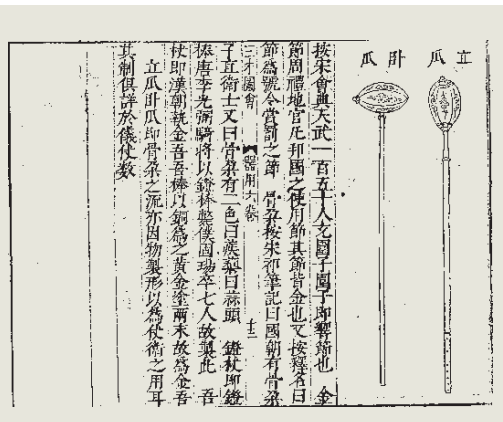 立瓜
卧瓜
按宋會典大武一百五十人充圍子圍子即響節也 金
節周禮地官凡邦國之使用節其節皆金也又按釋名曰
節為號令賞罰之節 骨朶按宋祁筆記曰國朝有骨朶
三才圖會 器用六卷
子直衛士又曰骨朶有二色曰蒺藜曰蒜頭 鐙杖即鐙
棒唐李光弼騎將以鐙棒擊僕固瑒卒七人故製此 吾
杖即漢朝執金吾吾棒以銅為之黃金塗兩末故為金吾
立瓜卧瓜即骨朶之流亦因物製形以為仗衛之用耳
其制俱詳於儀仗數